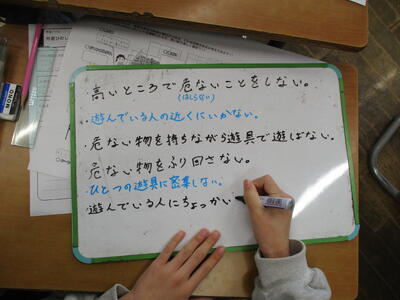 ・高いところで危ないことをしない。
(はしらない)
・遊んでいる人の近くにいかない。
・危ない物を持ちながら遊具で遊ばない。
・危ない物をふり回さない。
・ひとつの遊具に密集しない。
・遊んでいる人にちょっかい
MONO